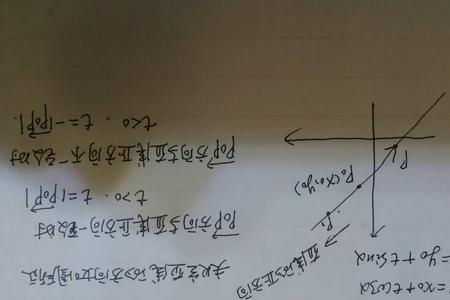 = x₀ + t cosα
= y₀ + t sinα
直线的正方向
P
P₀(x₀, y₀)
P
规定直线的方向如图所示
P₀P方向与直线正方向一致时
t>0. t=|P₀P|
P₀P方向与直线正方向不一致时
t<0. t=-|P₀P|.